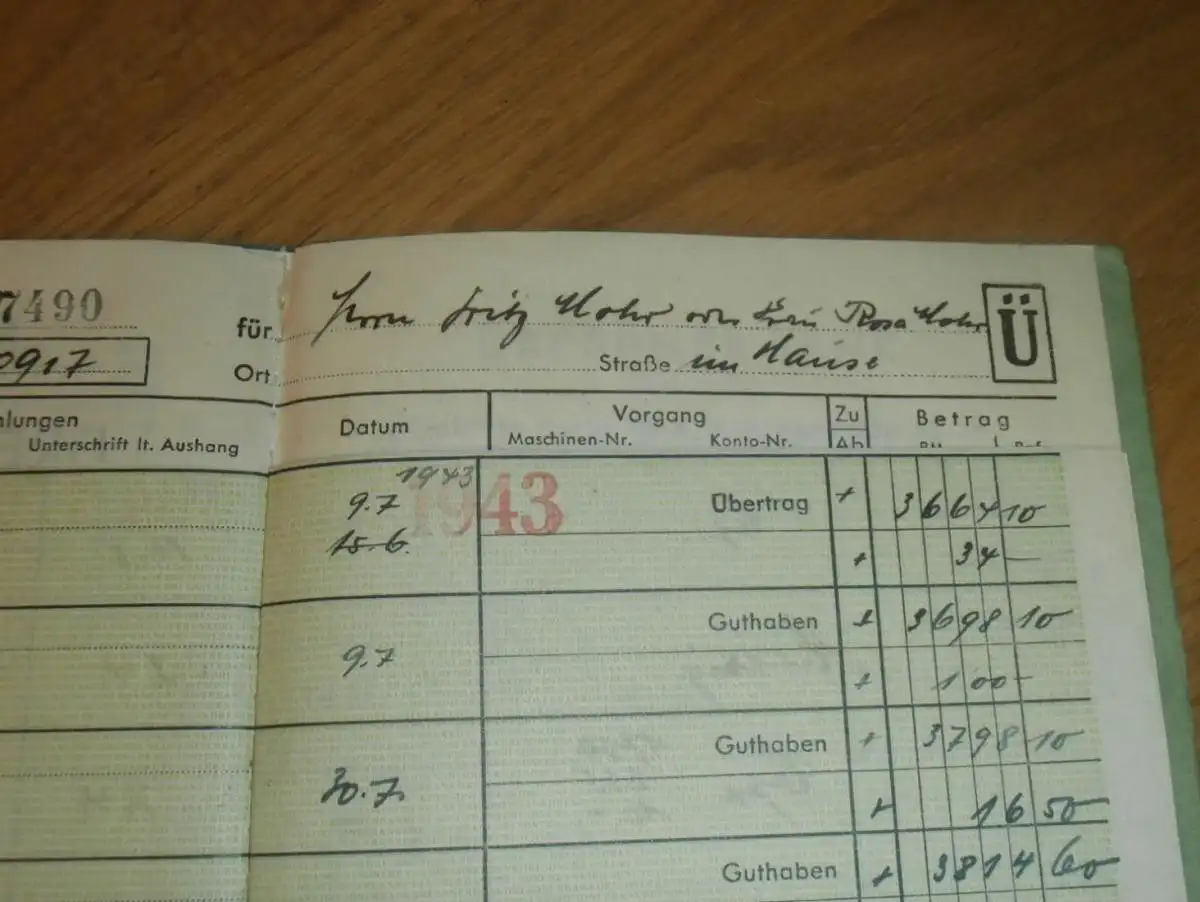 7490
für Herrn Fritz Mohr oder Frau Rosa Mohr Ü
0917
Ort Straße im Hause
hlungen Datum Vorgang Zu Betrag
Unterschrift lt. Aushang Maschinen-Nr. Konto-Nr. Ab
1943
9.7 1943 Übertrag + 3664 10
15.6. + 34 —
Guthaben + 3698 10
9.7 + 100 -
Guthaben + 3798 10
30.7. + 16 50
Guthaben + 3814 60